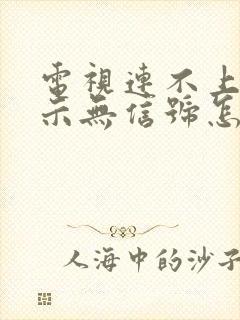 電視連不上
示無信號怎
人海中的沙子